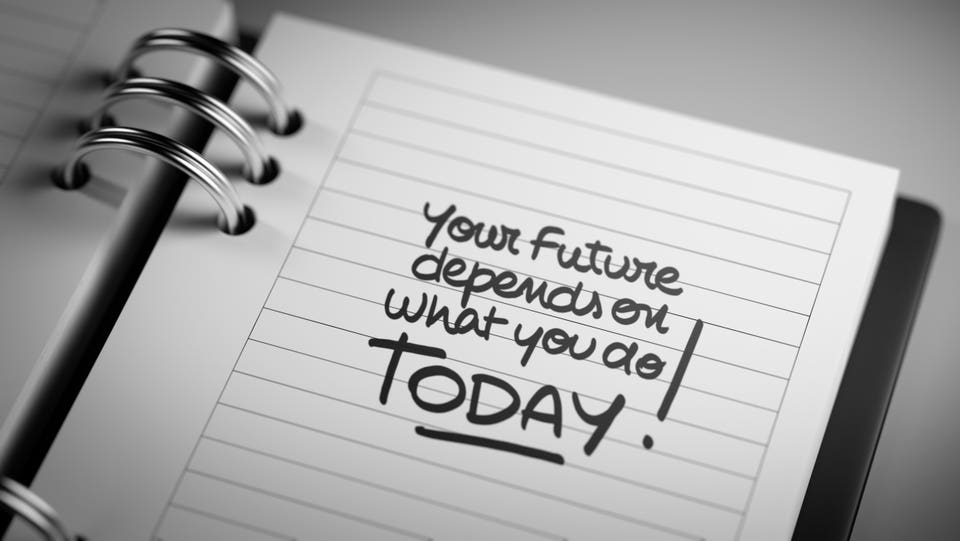 Your Future
depends on
what you do
TODAY!